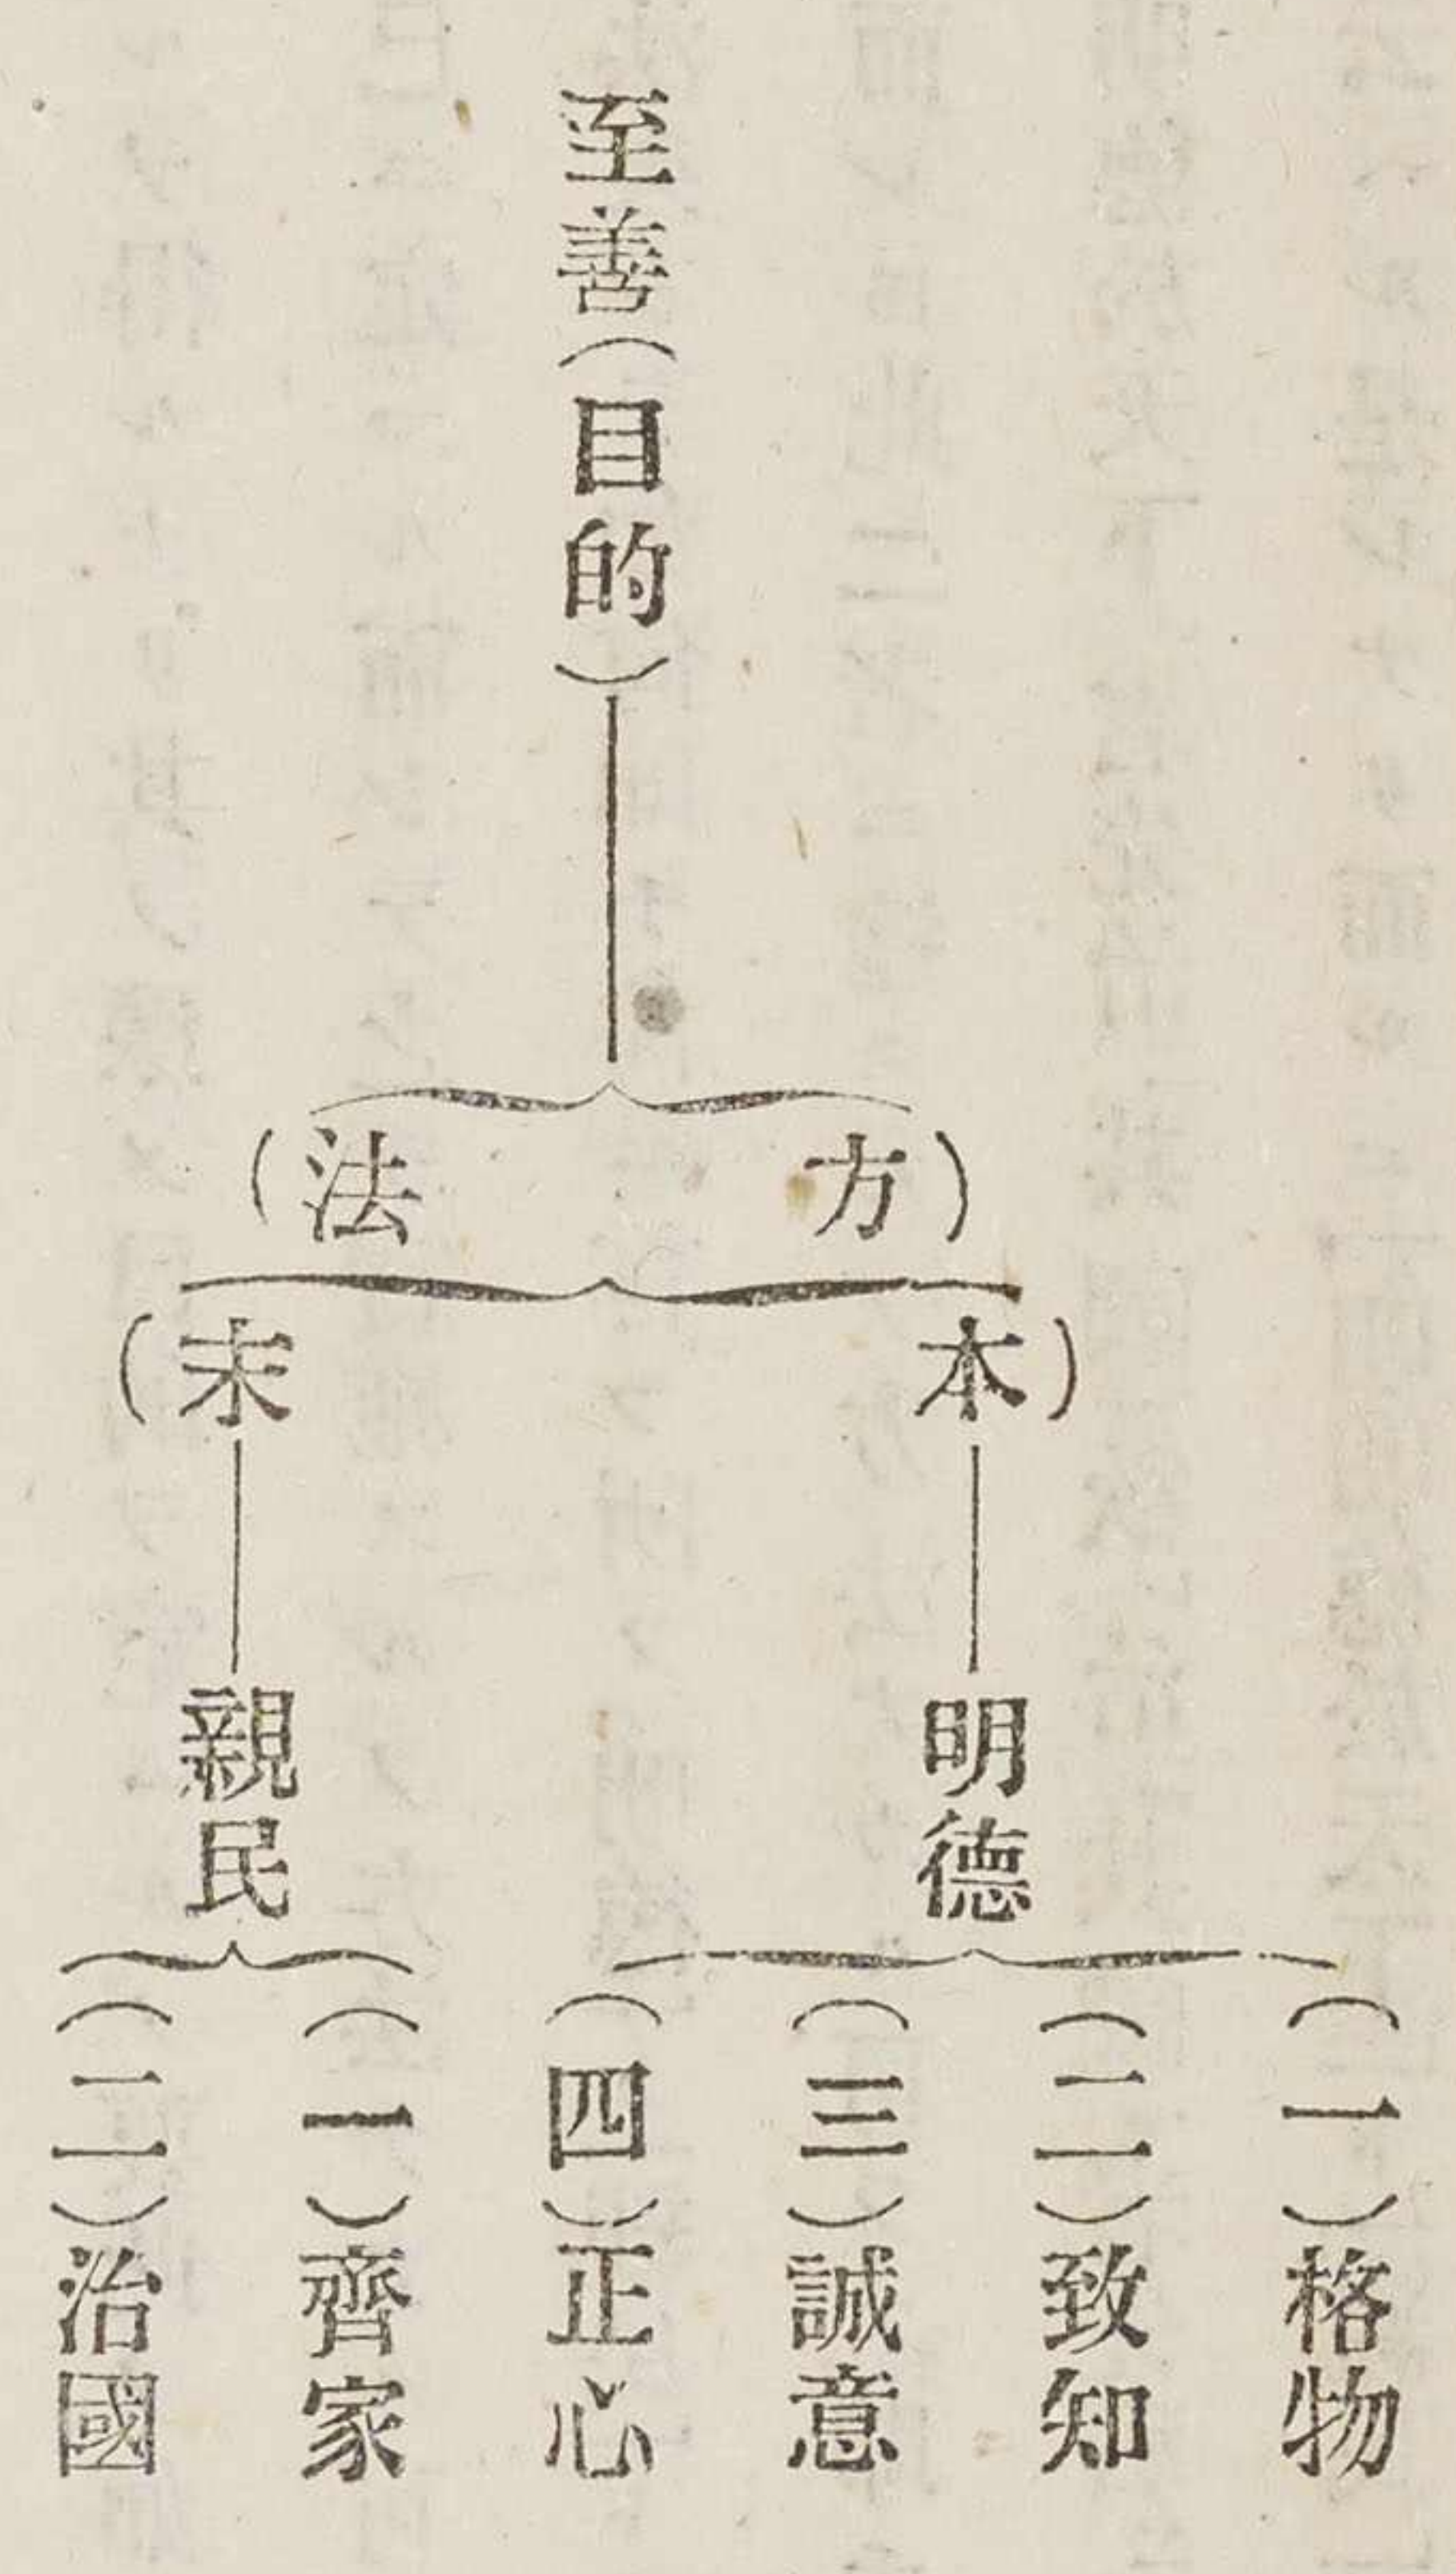 至善(目的)
(方法)
(本末)
明德
(一)格物
(二)致知
(三)誠意
(四)正心
親民
(一)齊家
(二)治國